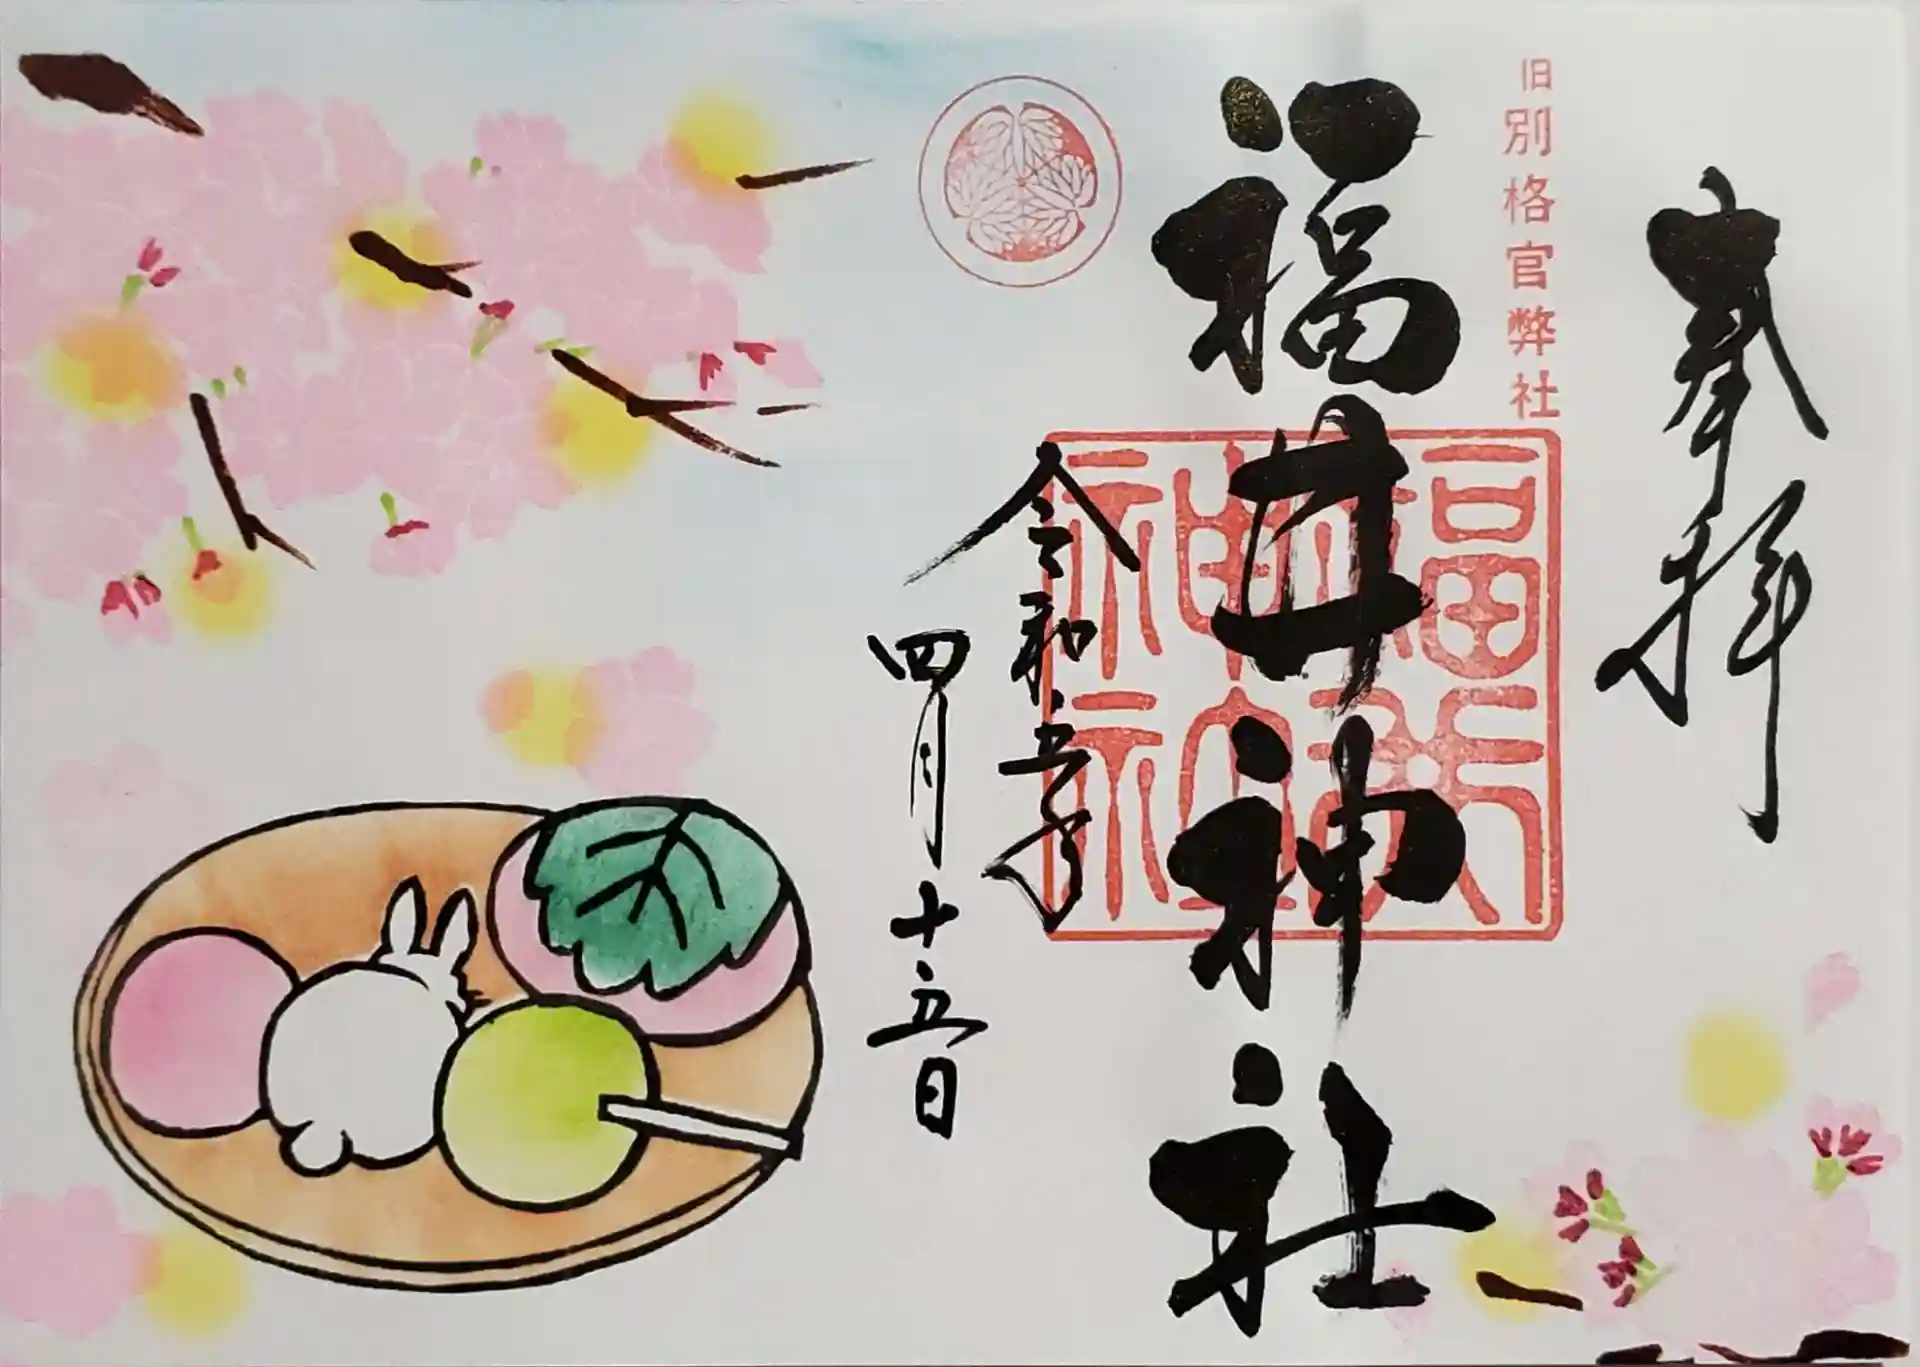 奉拝
旧別格官幣社
福井神社
福井神社
令和五年
四月十五日